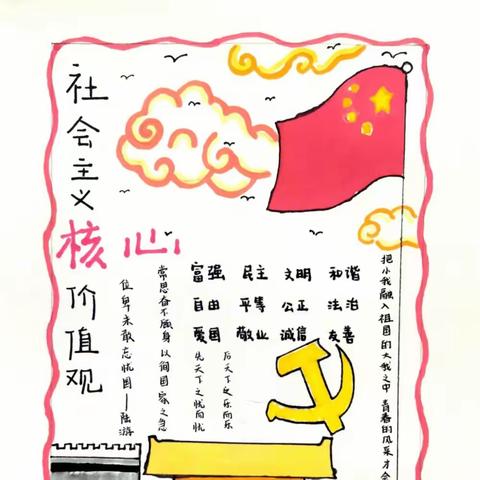 社会主义
核心
价值观
富强 民主 文明 和谐
自由 平等 公正 法治
爱国 敬业 诚信 友善
位卑未敢忘忧国——陆游
常思奋不顾身 以徇国家之急
先天下之忧而忧
后天下之乐而乐
把小我融入祖国的大我之中 青春的风采才会